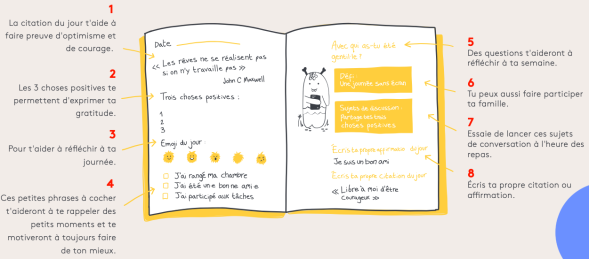 1
La citation du jour t'aide à
faire preuve d'optimisme et
de courage.
2
Les 3 choses positives te
permettent d'exprimer ta
gratitude.
3
Pour t'aider à réfléchir à ta
journée.
4
Ces petites phrases à cocher
t'aideront à te rappeler des
petits moments et te
motiveront à toujours faire
de ton mieux.
Date
<< Les rêves ne se réalisent pas
si on n'y travaille pas >>
John C Maxwell
Trois choses positives :
1
2
3
Emoji du jour
J'ai rangé ma chambre
J'ai été un·e bonne ami·e
J'ai participé aux tâches
Avec qui as-tu été
gentille?
Défi :
Une journée sans écran
Sujets de discussion :
Partage tes trois
choses positives
Écris ta propre affirmation du jour
Je suis un bon ami
Écris ta propre citation du jour
<< Libre à moi d'être
courageux >>
5
Des questions t'aideront à
réfléchir à ta semaine.
6
Tu peux aussi faire participer
ta famille.
7
Essaie de lancer ces sujets
de conversation à l'heure des
repas.
8
Écris ta propre citation ou
affirmation.